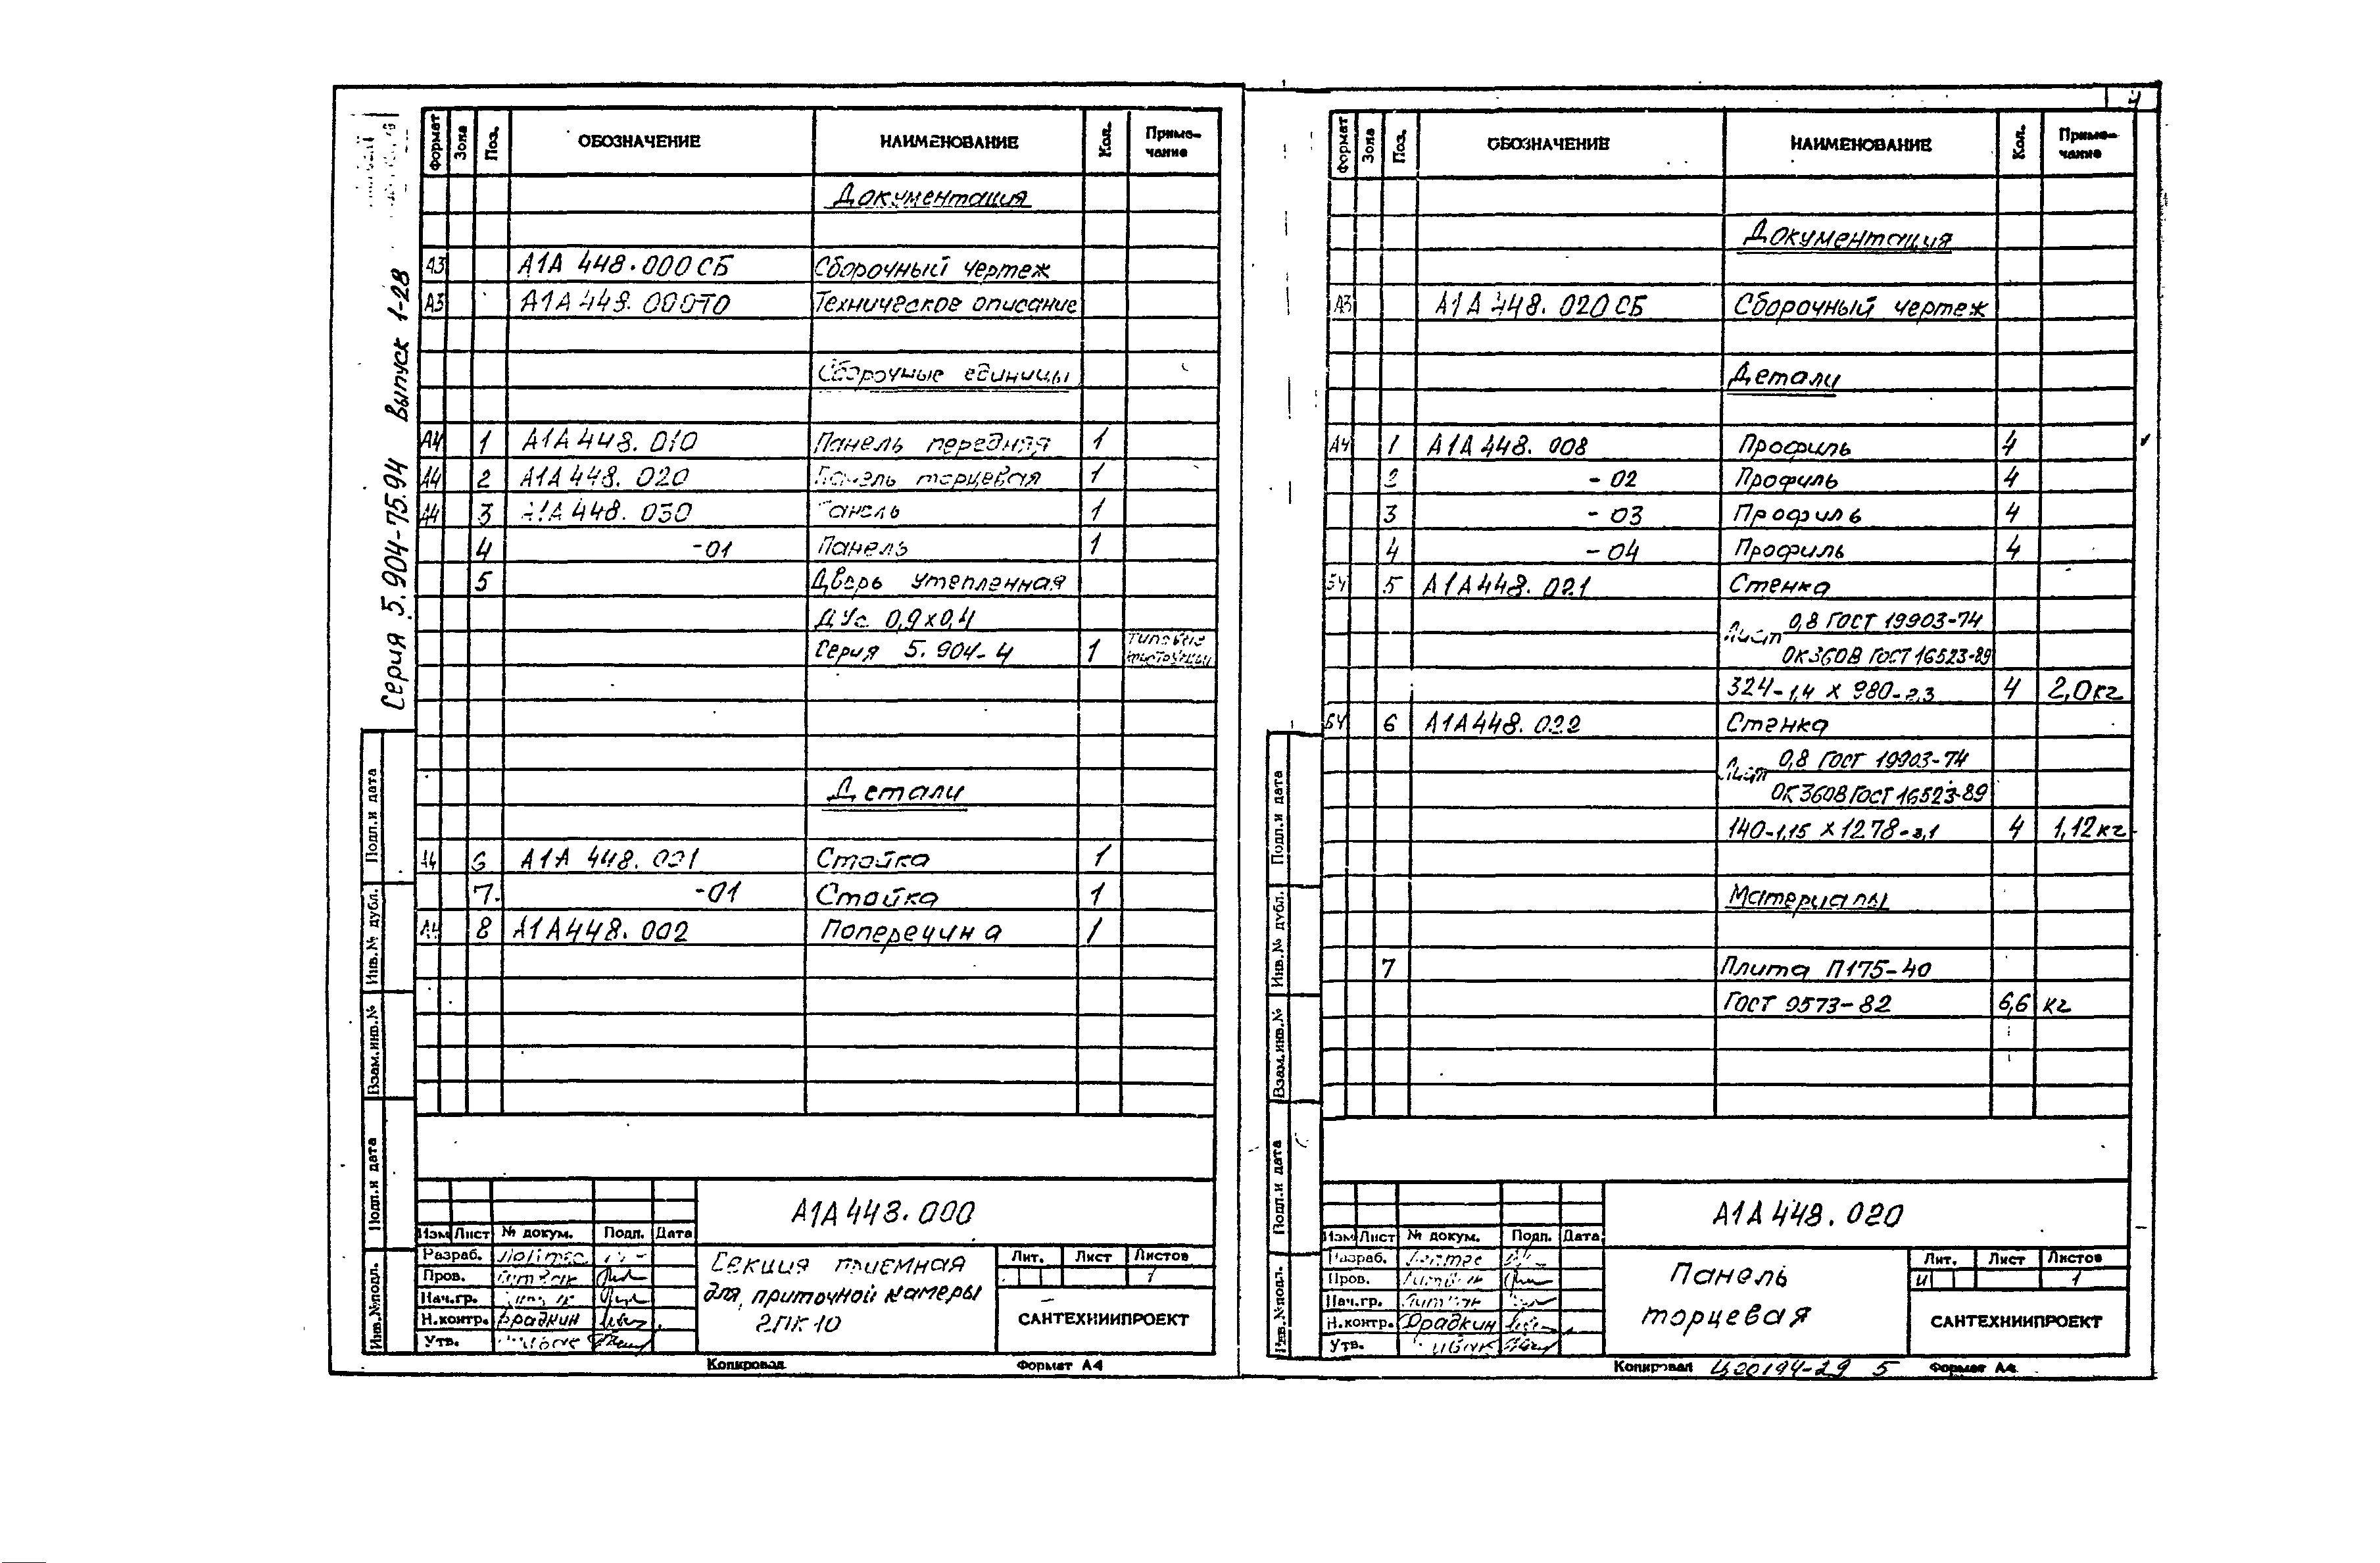 Серия 5.904-75.94 Выпуск 1-28
Формат Зона Поз. ОБОЗНАЧЕНИЕ НАИМЕНОВАНИЕ Кол. Приме-
чание
Документация
А3 А1А 448.000 СБ Сборочный чертеж
А3 А1А 448.000ТО Техническое описание
Сборочные единицы
А4 1 А1А 448.010 Панель передняя 1
А4 2 А1А 448.020 Панель торцевая 1
А4 3 А1А 448.030 Панель 1
4 -01 Панель 1
5 Дверь утепленная
ДУс 0,9х0,4
Серия 5.904-4 1
Детали
А4 6 А1А 448.001 Стойка 1
7 -01 Стойка 1
А4 8 А1А 448.002 Поперечина 1
Подп. и дата
Инв.№ дубл.
Взам.инв.№
Подп.и дата
Инв.№подл.
А1А 448.000
Изм Лист № докум. Подп. Дата
Разраб.
Пров.
Нач.гр.
Н.контр. Фрадкин
Утв.
Секция приемная
для приточной камеры
2ПК10
Лит. Лист Листов
1
САНТЕХНИИПРОЕКТ
Копировал Формат А4
4
Формат Зона Поз. ОБОЗНАЧЕНИЕ НАИМЕНОВАНИЕ Кол. Приме-
чание
Документация
А3 А1А 448.020 СБ Сборочный чертеж
Детали
А4 1 А1А 448.008 Профиль 4
2 - 02 Профиль 4
3 - 03 Профиль 4
4 - 04 Профиль 4
БЧ 5 А1А 448.021 Стенка
Лист 0,8 ГОСТ 19903-74
ОК360В ГОСТ 16523-89
324-1,4 х 980-2,3 4 2,0кг
БЧ 6 А1А 448.022 Стенка
Лист 0,8 ГОСТ 19903-74
ОК360В ГОСТ 16523-89
140-1,15 х 1278-3,1 4 1,12кг
Материалы
7 Плита П175-40
ГОСТ 9573-82 6,6 кг
Подп.и дата
Инв.№ дубл.
Взам.инв.№
Подп.и дата
Инв.№подл.
А1А 448.020
Изм Лист № докум. Подп. Дата
Разраб.
Пров.
Нач.гр.
Н.контр. Фрадкин
Утв.
Панель
торцевая
Лит. Лист Листов
И 1
САНТЕХНИИПРОЕКТ
Копировал Ц00194-29 5 Формат А4